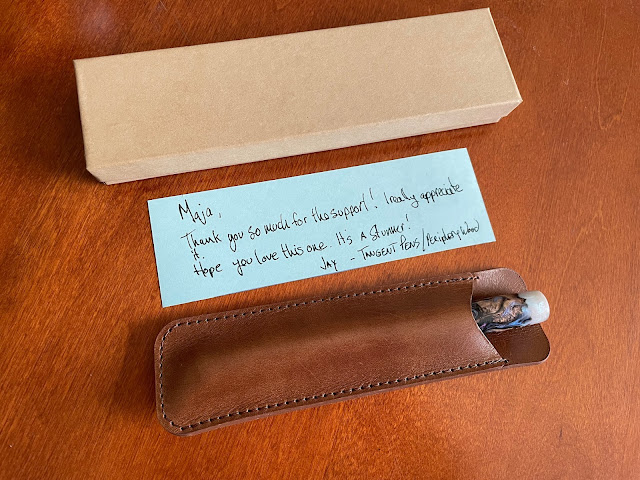 Maja,
Thank you so much for the support! I really appreciate
it.
Hope you love this one. It's A Stunner!
Jay - Tangent Pens/Periphery Wood